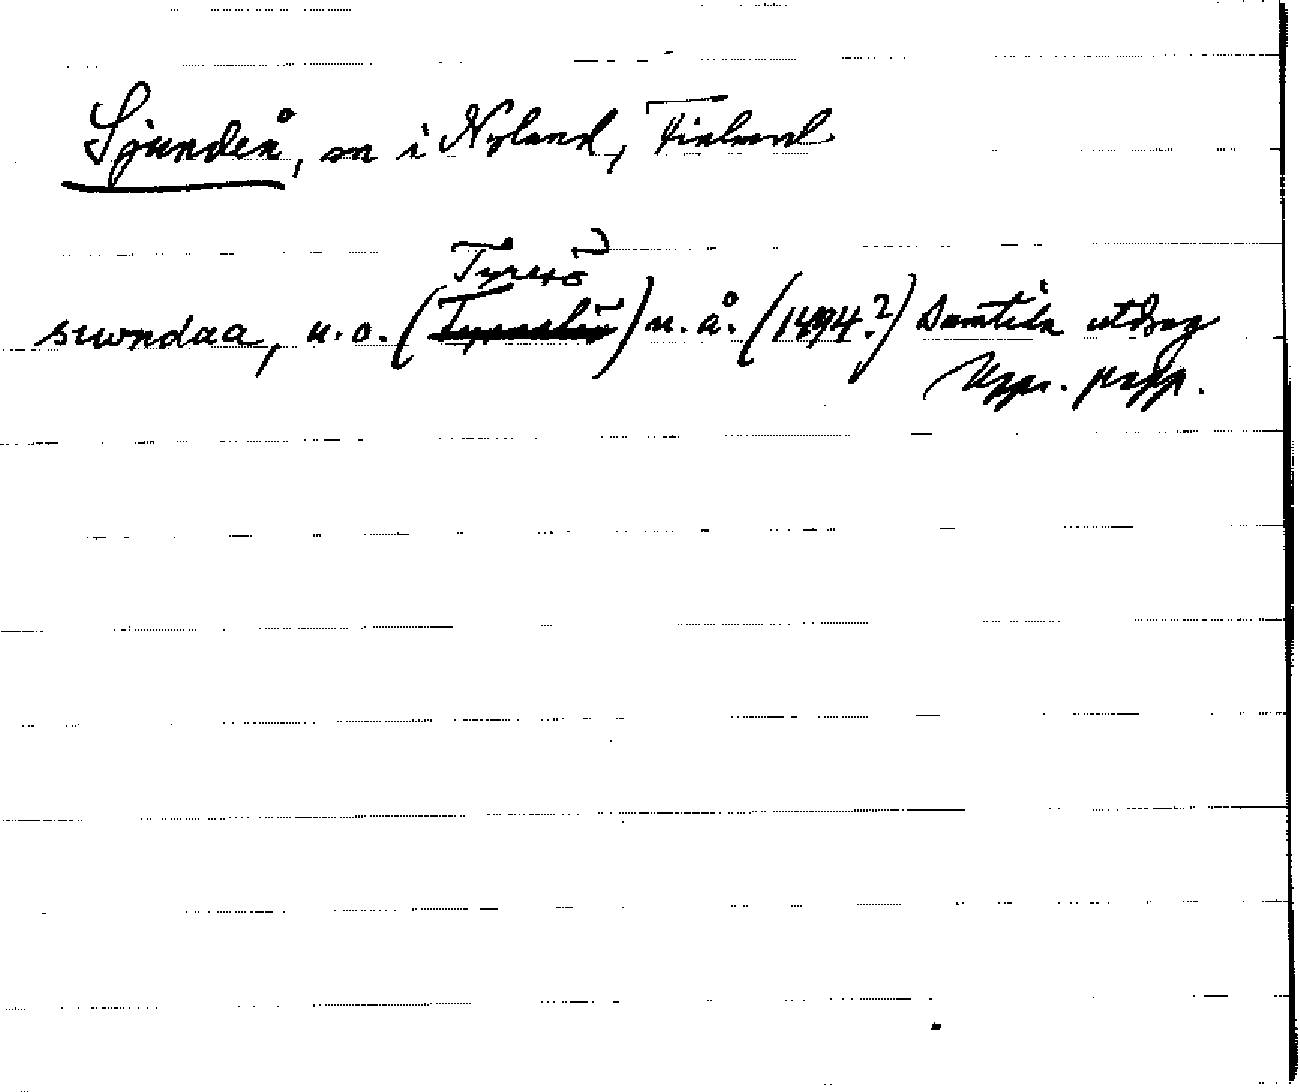 Sjundeå, sn i Nyland, Finland
Tyresö?
suwndaa, u.o. ( ) u.å. (1494?) Samtida utdrag
Upps. papp.